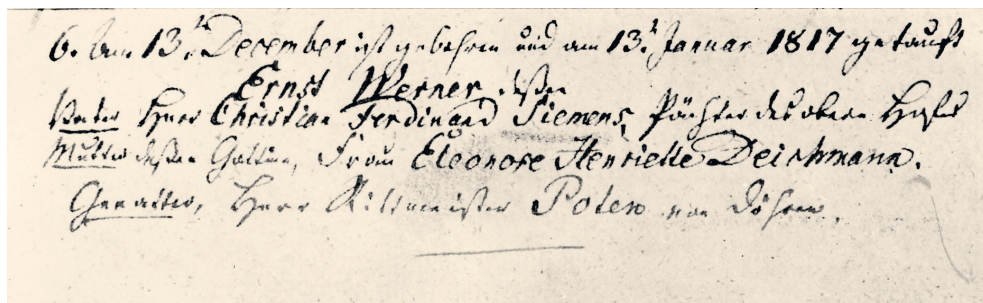 6. Am 13t. December ist gebohren und am 13t Januar 1817 getauft
Ernst Werner, dessen
Vater Herr Christian Ferdinand Siemens, Pächter des obern Hofes
Mutter dessen Gattinn, Frau Eleonore Henriette Deichmann.
Gevatter, Herr Rittmeister Poten von Döhren.